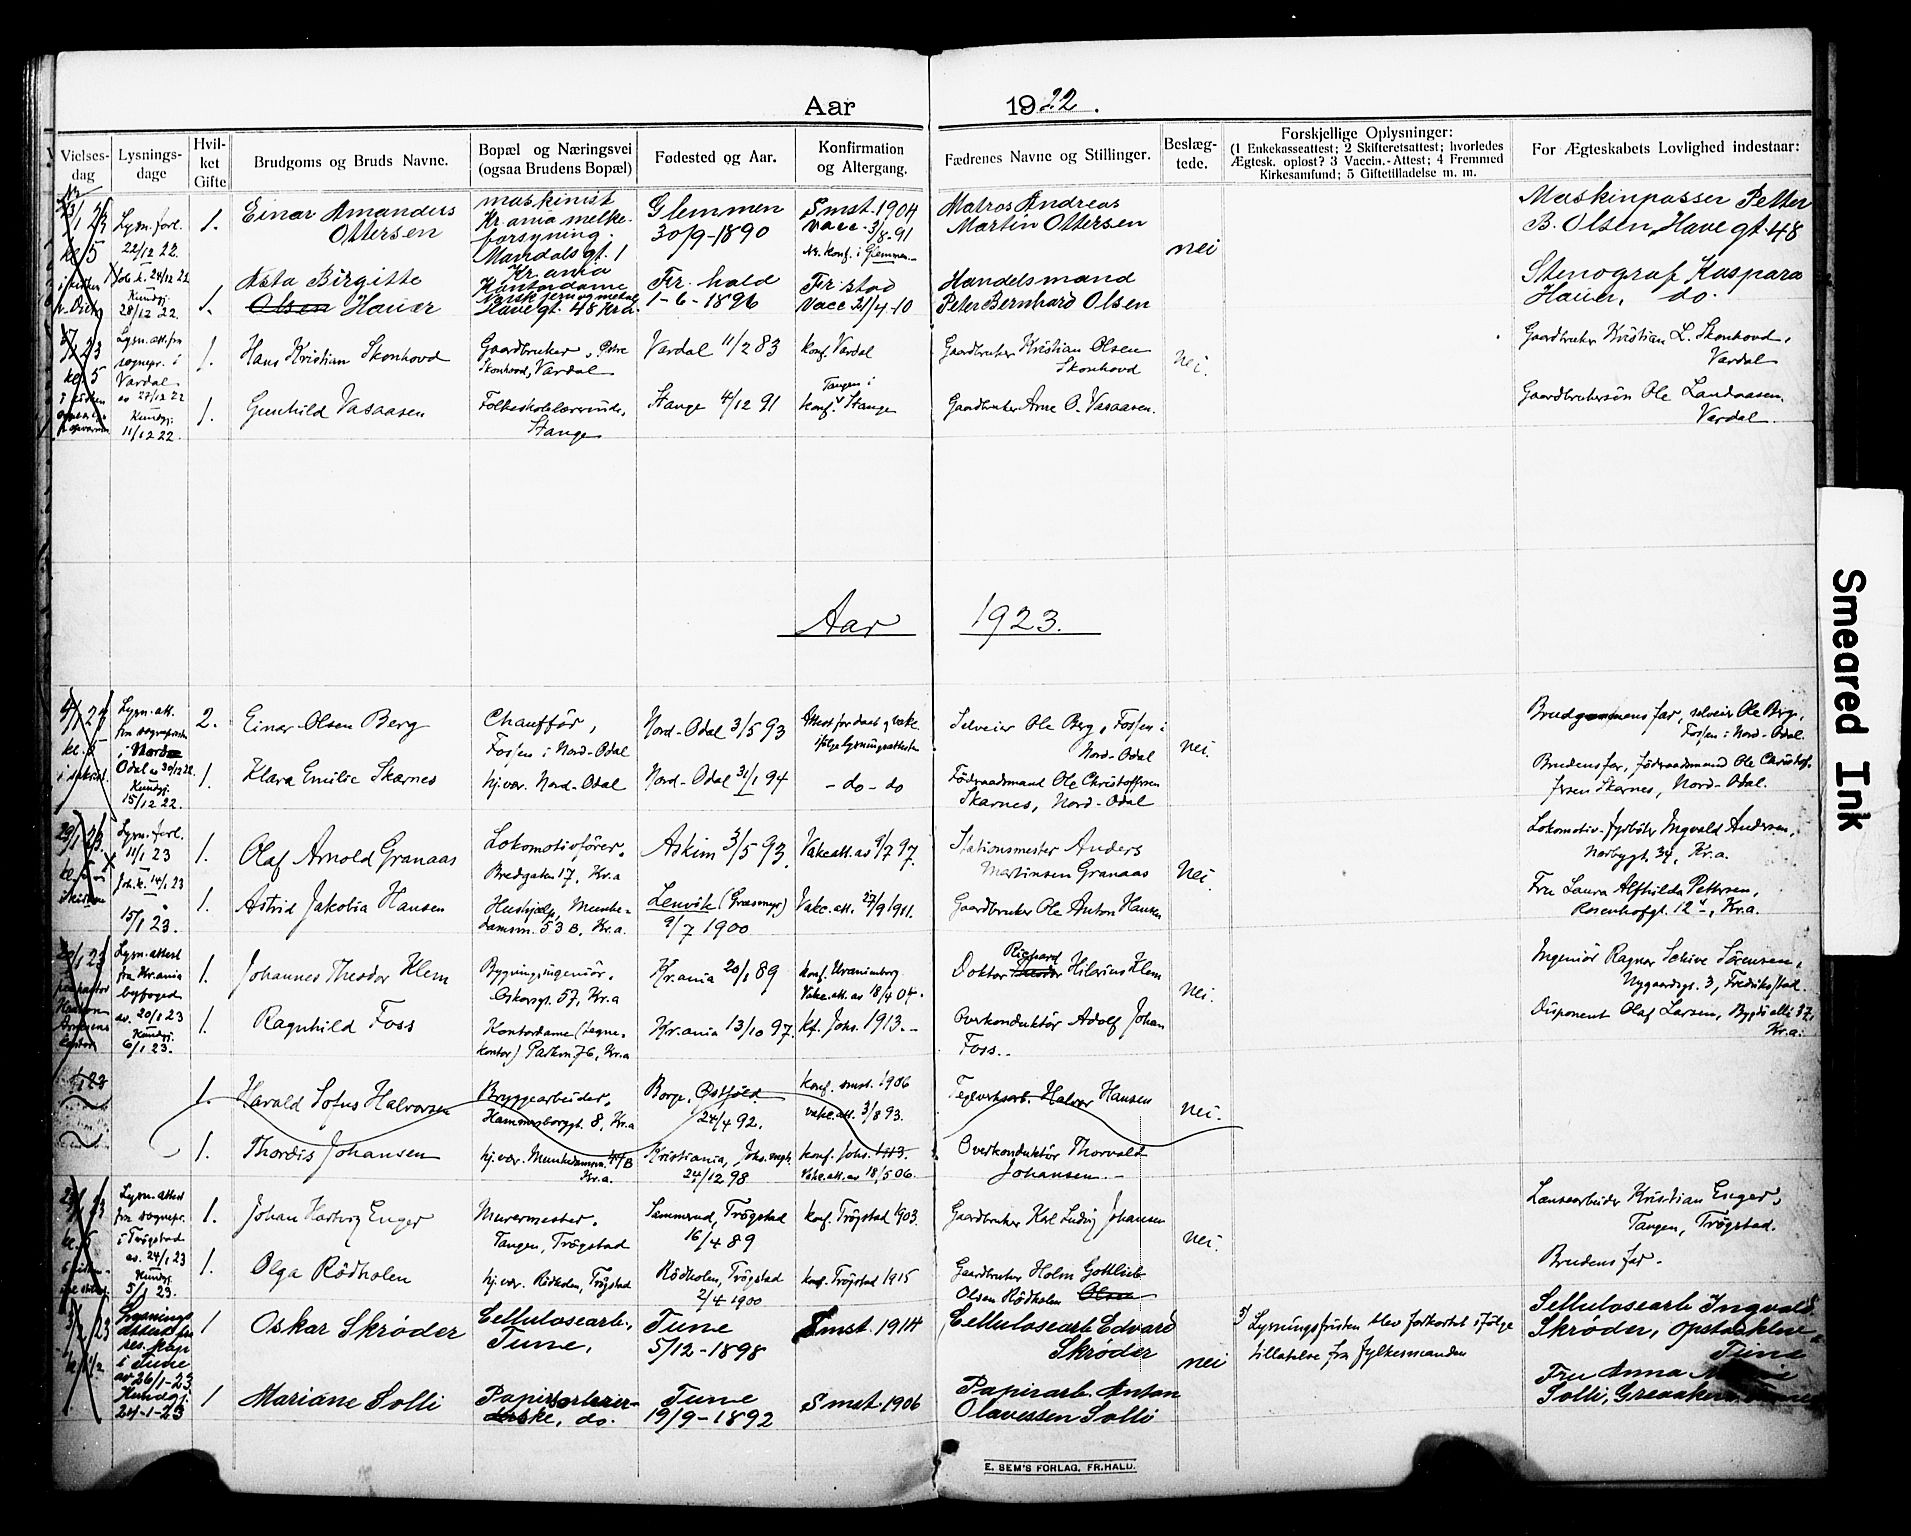 Aar 1922.
Vielses-dag
Lysnings-dage
Hvil-ket Gifte
Brudgoms og Bruds Navne.
Bopæl og Næringsvei (ogsaa Brudens Bopæl)
Fødested og Aar.
Konfirmation og Altergang.
Fædrenes Navne og Stillinger.
Beslæg-tede.
Forskjellige Oplysninger:
(1 Enkekasseattest; 2 Skifteretsattest; hvorledes
Ægtesk. oplost? 3 Vaccin.-Attest; 4 Fremmed
Kirkesamfund; 5 Giftetilladelse m. m.
For Ægteskabets Lovlighed indestaar:
Lysn. forl.
22/12 22.
Kundgj.
28/12 22.
1.
Einar Amandus
Ottersen
maskinist
Kr.ania melke-
forsyning.
Mandalsgt. 1
Kr.ania
Glemmen
30/9-1890
Smst. 1904
Vacc. 3/8-91
Nr. konf. i Glemmen.-
Matros Andreas
Martin Ottersen
nei
Maskinpasser Petter
B. Olsen, Havegt. 48
1.
Asta Birgitte
Olsen Hauer
Kontordame
Norsk jern og metal
Havegt. 48 Kr.a.
Fr. hald
1-6-1896
Fr.stad
Vacc 21/4-10
Handelsmand
Peter Bernhard Olsen
Stenograf Kaspara
Hauer, do.
kl. 5
Lysn. att. fra
sognepr. i
Vardal
av 27/12 22
Kundgj.
11/12 22.
1.
Hans Kristian Skonhovd
Gaardbruker, Østre
Skonhovd, Vardal
Vardal 11/2 83
konf. Vardal
Gaardbruker Kristian Olsen
Skonhovd
nei.
Gaardbruker Kristian L. Skonhovd,
Vardal
1.
Gunhild Vasaasen
Folkeskolelærerinde,
Stange
Stange 4/12 91
Tangen i
konf. Stange
Gaardbruker Arne O. Vasaasen.
Gaardbrukersøn Ole Landaasen,
Vardal.
Aar 1923.
Lysn. att.
fra sogneprest
i Nord
Odal av 30/12 22.
Kundgj.
15/12 22.
2.
Einar Olsen Berg
Chauffør,
Fossen i Nord-Odal
Nord-Odal 3/5 93
Attest for daab og vakc.
ifølge lysningsattesten
Selveier Ole Berg, Fossen i
Nord-Odal
nei.
Brudgommens far, selveier Ole Berg,
Fossen i Nord-Odal.
1.
Klara Emilie Skarnes
hj.vær. Nord-Odal
Nord-Odal 31/1 94
- do - do
Föderaadsmand Ole Christoffersen
Skarnes, Nord-Odal
Brudens far, föderaadsmand Ole Christof-
fersen Skarnes, Nord-Odal.
Lysn. forl.
11/1 23
Joh. k. 14/1 23
15/1 23.
1.
Olaf Arnold Granaas
Lokomotivfører,
Bredgaten 17, Kr.a
Askim 3/5 93.
Vakc.att. av 9/7 97.
Stationsmester Anders
Martinsen Granaas
Nei.
Lokomotiv-fyrbøter Ingvald Andersen,
Norbygt. 34, Kr.a.
1.
Astrid Jakobia Hansen
Hushjælp, Munke-
damsv. 53 B, Kr.a.
Lenvik (Græsmyr)
9/7 1900
Vakc.att. 27/9 1911.
Gaardbruker Ole Anton Hansen
Fru Laura Alfhilda Pettersen,
Rosenhofgt. 12 , Kr.a.
Lysn. attest
fra Kr.ania
byfoged
av. 20/1 23
Kundgj.
6/1 23.
1.
Johannes Theodor Klem
Bygningsingeniør,
Oskarsgt. 57, Kr.a
Kr.ania 20/1 89
konf. Uranienborg
Vakc.att. av 18/4 04.
Richard
Doktor Theodor Hilarius Klem
Nei.
Ingeniör Ragnar Schive Sörensen,
Nygaardsgt. 3, Fredrikstad.
1.
Ragnhild Foss
Kontordame (tegne-
kontor) Parkvn. 76, Kr.a
Kr.ania 13/10 97.
kf. Johs. 1913.-
Overkonduktör Adolf Johan
Foss.-
Disponent Olaf Larsen, Bygdö allé 37,
Kr.a.
1.
Harald Sofus Halvorsen
Bryggearbeider,
Hammersborggt. 8, Kr.a
Borge, Østfold
24/4 92.
konf. smst. 1906
vakc.att. 3/8 93.
Teglverksarb. Halvor Hansen
nei.
1.
Thordis Johansen
hj.vær. Munkedamsvn. B
Kr.a.
Kristiania, Johs. mgh.
24/12 98
konf. Johs. 1913.
Vakc.att. av 18/5 06.
Overkonduktör Thorvald
Johansen.-
Lysn. attest
fra sognepr.
i Trögstad
av. 24/1 23
Kundgj.
5/1 23.
1.
Johan Hartvig Enger
Murermester,
Tangen, Trögstad
Sæmmerud, Trögstad
16/4 89
konf. Trögstad 1903.
Gaardbruker Karl Ludvig Johansen
nei.
Lænsearbeider Kristian Enger,
Tangen, Trögstad.
1.
Olga Rödholen
hj.vær. Rödholen, Trögstad
Rödholen, Trögstad
2/4 1900
konf. Trögstad 1915
Gaardbruker Holm Gottlieb
Olsen Rödholen Olsen
Brudens far.
Lysnings
attest fra
res. kap.
i Tune
av 26/1-23
Kundgj.
24-1-23
1
Oskar Skrøder
Cellulosearb.,
Tune.
Tune
5/12-1898
Smst. 1914
Cellulosearb. Edvard
Skrøder
nei
5/ Lysningsfristen blev forkortet ifølge
tillatelse fra fylkesmanden
Sellulosearb Ingvald
Skrøder, Opstaklene
Tune
1
Mariane Solli
Papirsorterer-
ske, do.
Tune
19/9-1892
Smst. 1906
Papirarb. Anton
Olavessen Solli
Fru Anna
Solli, Greaaker
E. SEM'S FORLAG, FR.HALD.
Smeared Ink